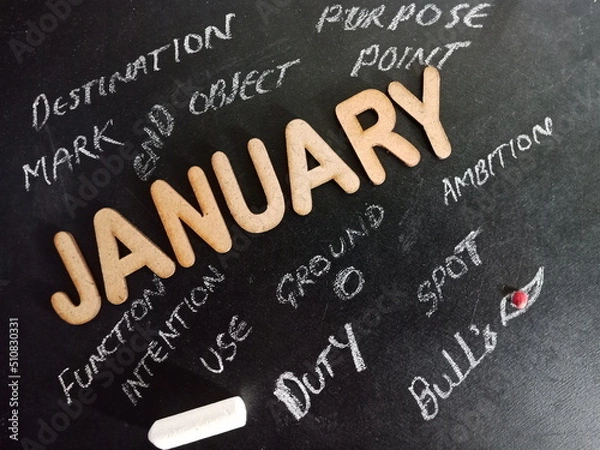 DESTINATION
PURPOSE
POINT
MARK
END
OBJECT
JANUARY
AMBITION
FUNCTION
INTENTION
USE
GROUND
O
SPOT
DUTY
Bull's
Adobe Stock | #510830331